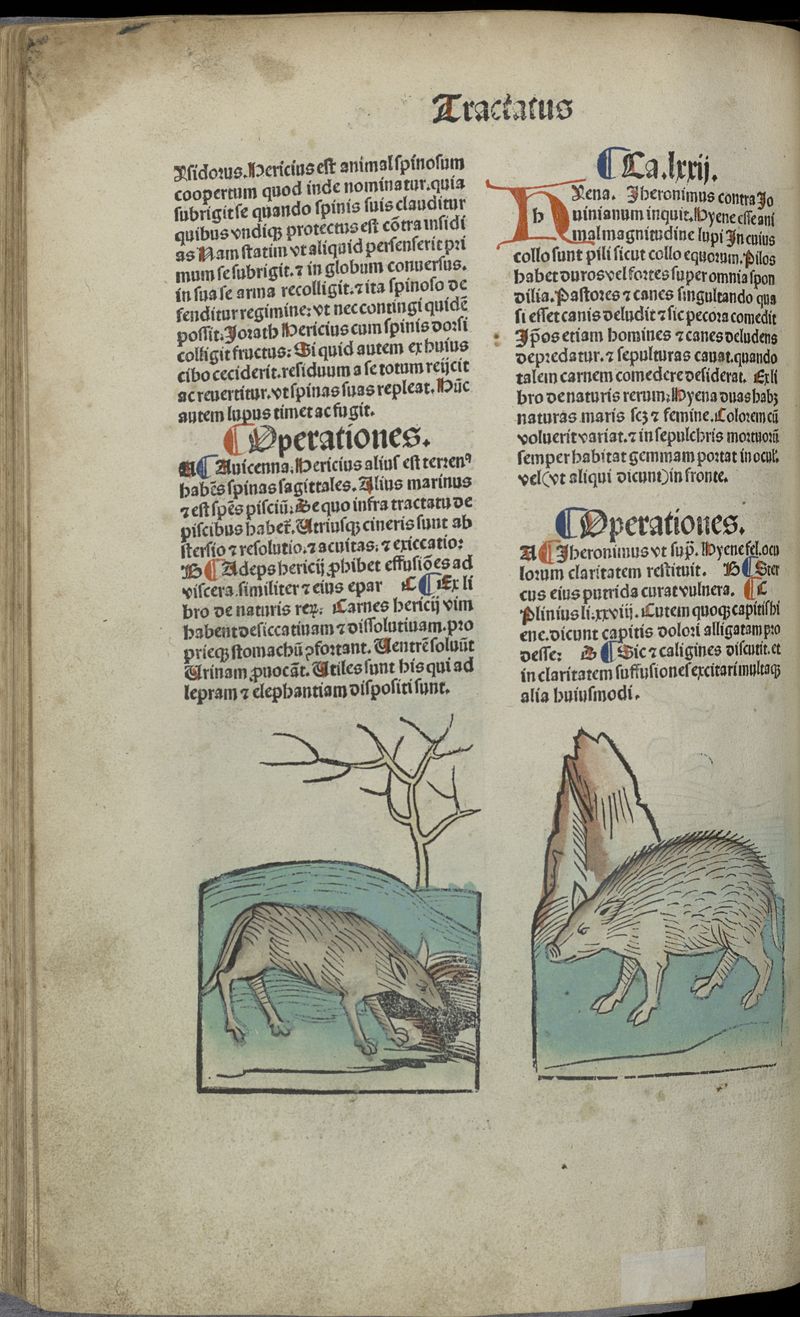 Tractatus
Ysidorus. Hericius est animal spinosum
coopertum quod inde nominatur. quia
subrigit se quando spinis suis clauditur
quibus vndiqꝫ protectus est cōtra insidi
as Nam statim vt aliquid persenserit pri
mum se subrigit. ⁊ in globum conuersus.
in sua se arma recolligit. ⁊ ita spinoso de
fenditur regimine: vt nec contingi quidē
possit. Jorath Hericius cum spinis dorsi
colligit fructus: Si quid autem ex huius
cibo ceciderit. residuum a se totum reijcit
ac reuertitur. vt spinas suas repleat. Hūc
autem lupus timet ac fugit.
¶ Operationes.
A ¶ Auicenna. Hericius alius est terrenꝰ
habēs spinas sagittales. Alius marinus
⁊ est spēs pisciū: De quo infra tractatu de
piscibus habet̄. Utriusqꝫ cineris sunt ab
stersio ⁊ resolutio. ⁊ acuitas. ⁊ exiccatio:
B ¶ Adeps hericij ꝓhibet effusiōes ad
viscera. similiter ⁊ eius epar C ¶ Ex li
bro de naturis reꝝ. Carnes hericij vim
habent desiccatiuam ⁊ dissolutiuam. pro
prieqꝫ stomachū ꝯfortant. Uentrē soluūt
Urinam ꝓuocāt. Utiles sunt his qui ad
lepram ⁊ elephantiam dispositi sunt.
¶ Ca. lxxij.
h Yena. Jheronimus contra Jo
uinianum inquit. Hyene esse ani
mal magnitudine lupi In cuius
collo sunt pili sicut collo equorum. Pilos
habet duros vel fortes super omnia spon
dilia. Pastores ⁊ canes singultando qua
si esset canis deludit ⁊ sic pecora comedit
Ip̄os etiam homines ⁊ canes deludens
depredatur. ⁊ sepulturas cauat. quando
talem carnem comedere desiderat. Ex li
bro de naturis rerum. Hyena duas habꝫ
naturas maris scꝫ ⁊ femine. Colorem cū
voluerit variat. ⁊ in sepulchris mortuorū
semper habitat gemmam portat in ocul.
vel (vt aliqui dicunt) in fronte.
¶ Operationes.
A ¶ Jheronimus vt sup̄. Hyene fel. ocu
lorum claritatem restituit. B ¶ Ster
cus eius putrida curat vulnera. ¶ C
Plinius li. xxviij. Cutem quoqꝫ capitis hi
ene. dicunt capitis dolori alligatam pro
desse: D ¶ Sic ⁊ caligines discutit. et
in claritatem suffusiones excitari multaqꝫ
alia huiusmodi.